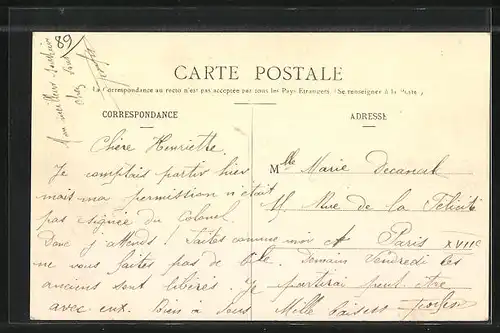 89
CARTE POSTALE
La Correspondance au recto n'est pas acceptée par tous les Pays Etrangers. (Se renseigner à la Poste)
CORRESPONDANCE
ADRESSE
Chère Henriette.
Je comptais partir hier
mais ma permission n'était
pas signée du Colonel
Donc j'attends! Faites comme moi et
ne vous faites pas de bile. Demain Vendredi les
anciens sont libérés. Je partirai peut être
avec eux. Bien à vous Mille baisers
Mlle Marie
15 Rue de la Félicité
Paris XVIIe